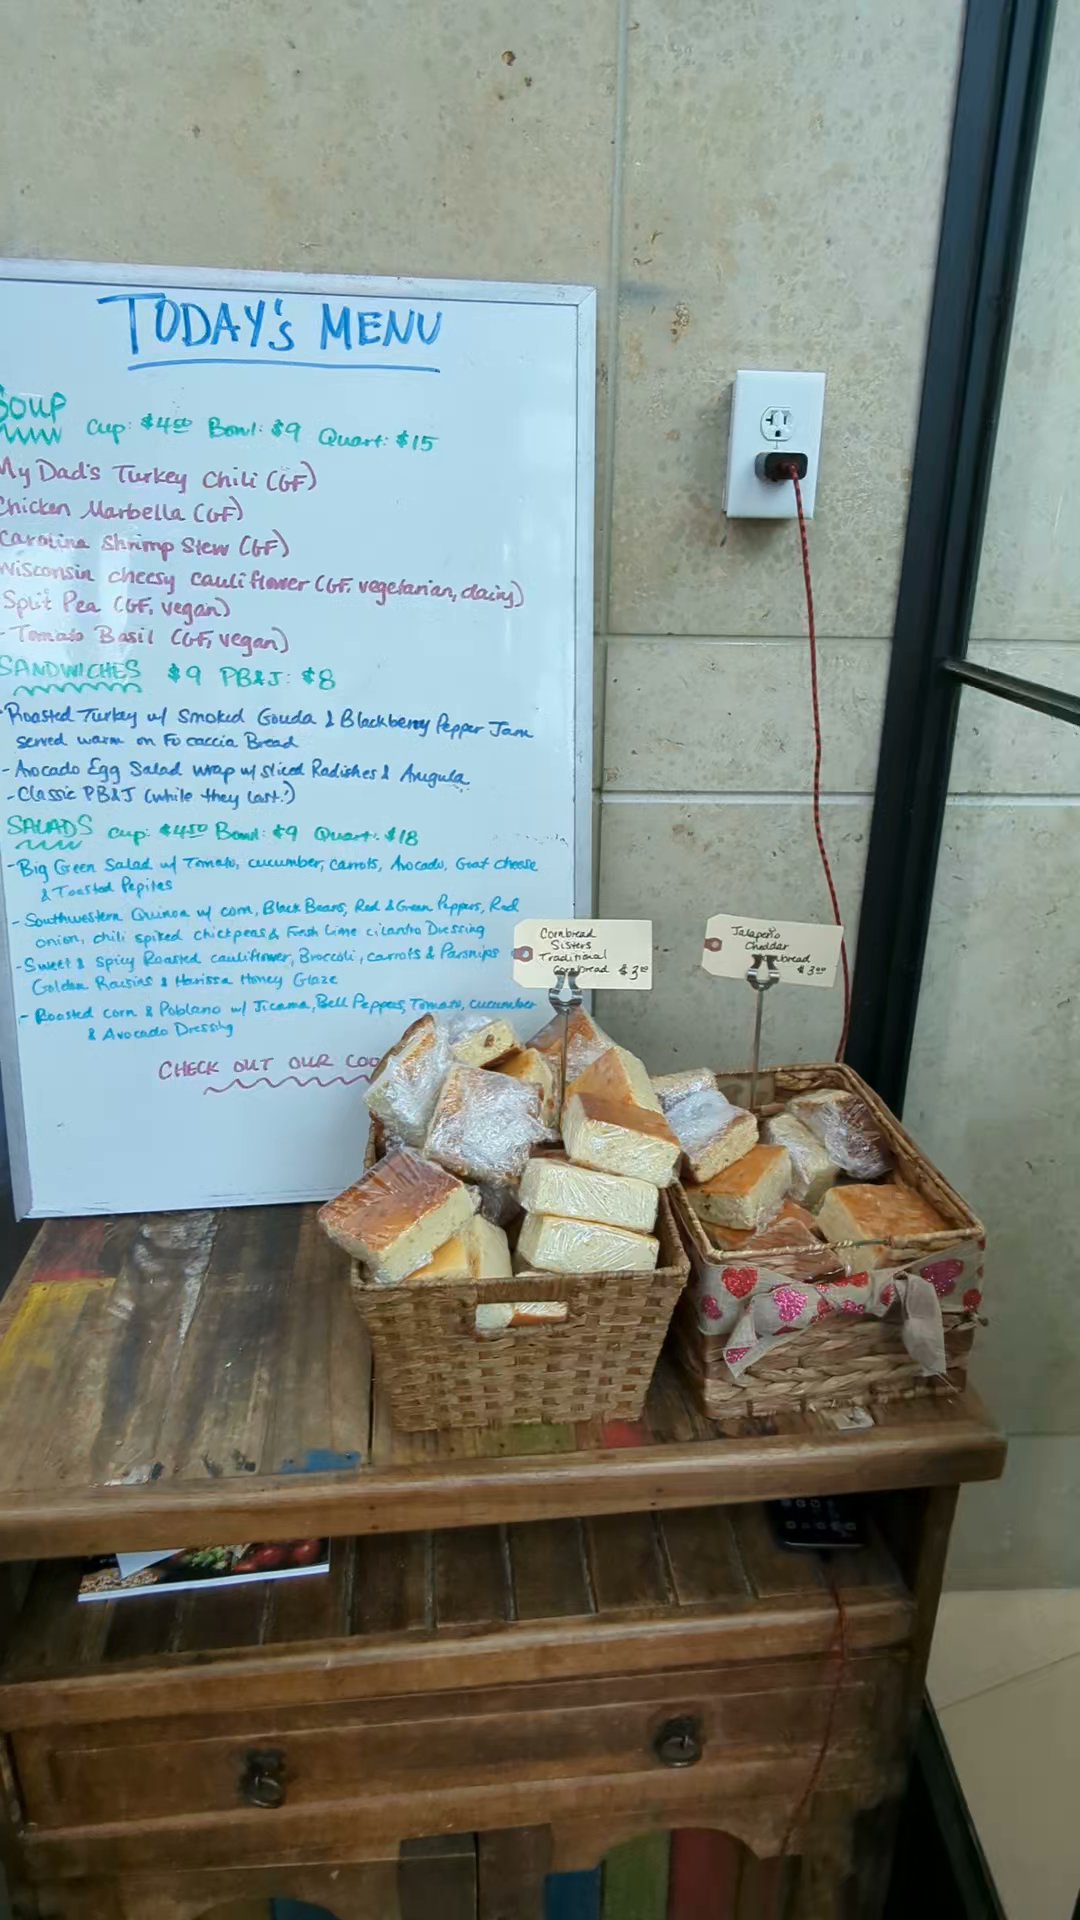 TODAY'S MENU
SOUP Cup: $4.50 Bowl: $9 Quart: $15
My Dad's Turkey Chili (GF)
Chicken Marbella (GF)
Carolina Shrimp Stew (GF)
Wisconsin cheesy cauliflower (GF, vegetarian, dairy)
Split Pea (GF, vegan)
- Tomato Basil (GF, vegan)
SANDWICHES $9 PB&J: $8
- Roasted Turkey w/ Smoked Gouda & Blackberry Pepper Jam
served warm on Foccaccia Bread
- Avocado Egg Salad wrap w/ sliced Radishes & Arugula
- Classic PB&J (while they last!)
SALADS Cup: $4.50 Bowl: $9 Quart: $18
- Big Green Salad w/ Tomato, cucumber, carrots, Avocado, Goat cheese
& Toasted Pepitas
- Southwestern Quinoa w/ corn, Black Beans, Red & Green Peppers, Red
onion, chili spiked chickpeas & Fresh Lime cilantro Dressing
- Sweet & Spicy Roasted cauliflower, Broccoli, carrots & Parsnips
Golden Raisins & Harissa Honey Glaze
- Roasted corn & Poblano w/ Jicama, Bell Peppers, Tomato, cucumber
& Avocado Dressing
CHECK OUT OUR COO
Cornbread
Sisters
Traditional
Cornbread $3.00
Jalapeño
Cheddar
Cornbread
$3.00